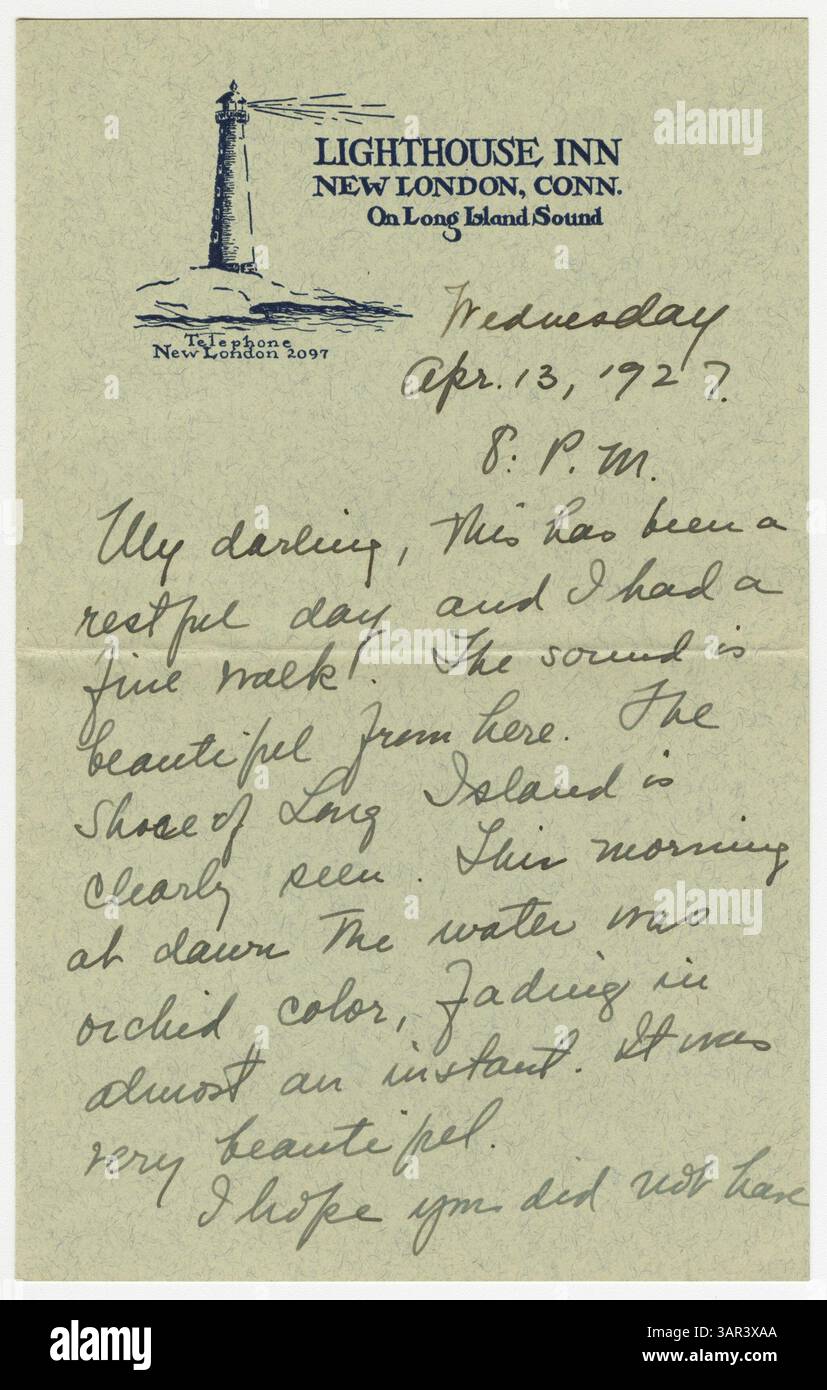 LIGHTHOUSE INN
NEW LONDON, CONN.
On Long Island Sound
Telephone
New London 2097
Wednesday
Apr. 13, 1927.
8: P.M.
My darling, This has been a
restful day and I had a
fine walk. The sound is
beautiful from here. The
Shore of Long Island is
clearly seen. This morning
at dawn the water was
orchid color, fading in
almost an instant. It was
very beautiful.
I hope you did not have
alamy
alamy
Image ID: 3AR3XAA
www.alamy.com